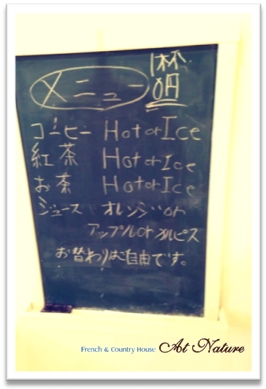 メニュー
1杯
0円
コーヒー Hot or Ice
紅茶 Hot or Ice
お茶 Hot or Ice
ジュース オレンジ or
アップル or カルピス
お替わりはご自由です。
French & Country House At Nature